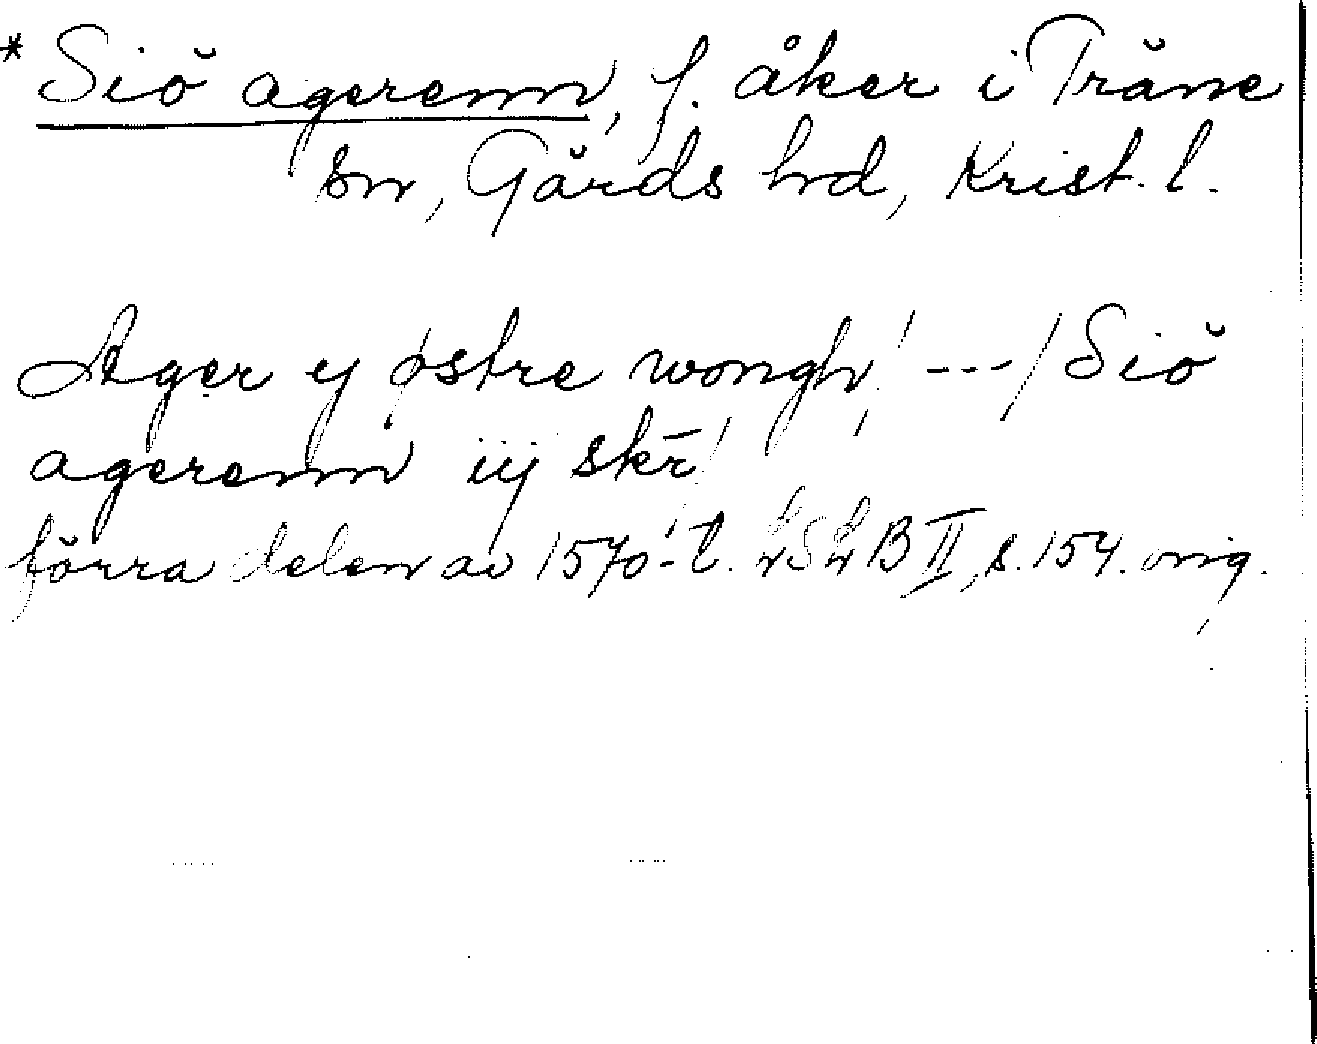 * Siö agerenn, f. åker i Träne
sn, Gärds hd, Krist. l.
Ager y østre wongh! ---/ Siö
agerenn iij skr̄!
förra delen av 1570-t. LSLB II, s. 154. orig.